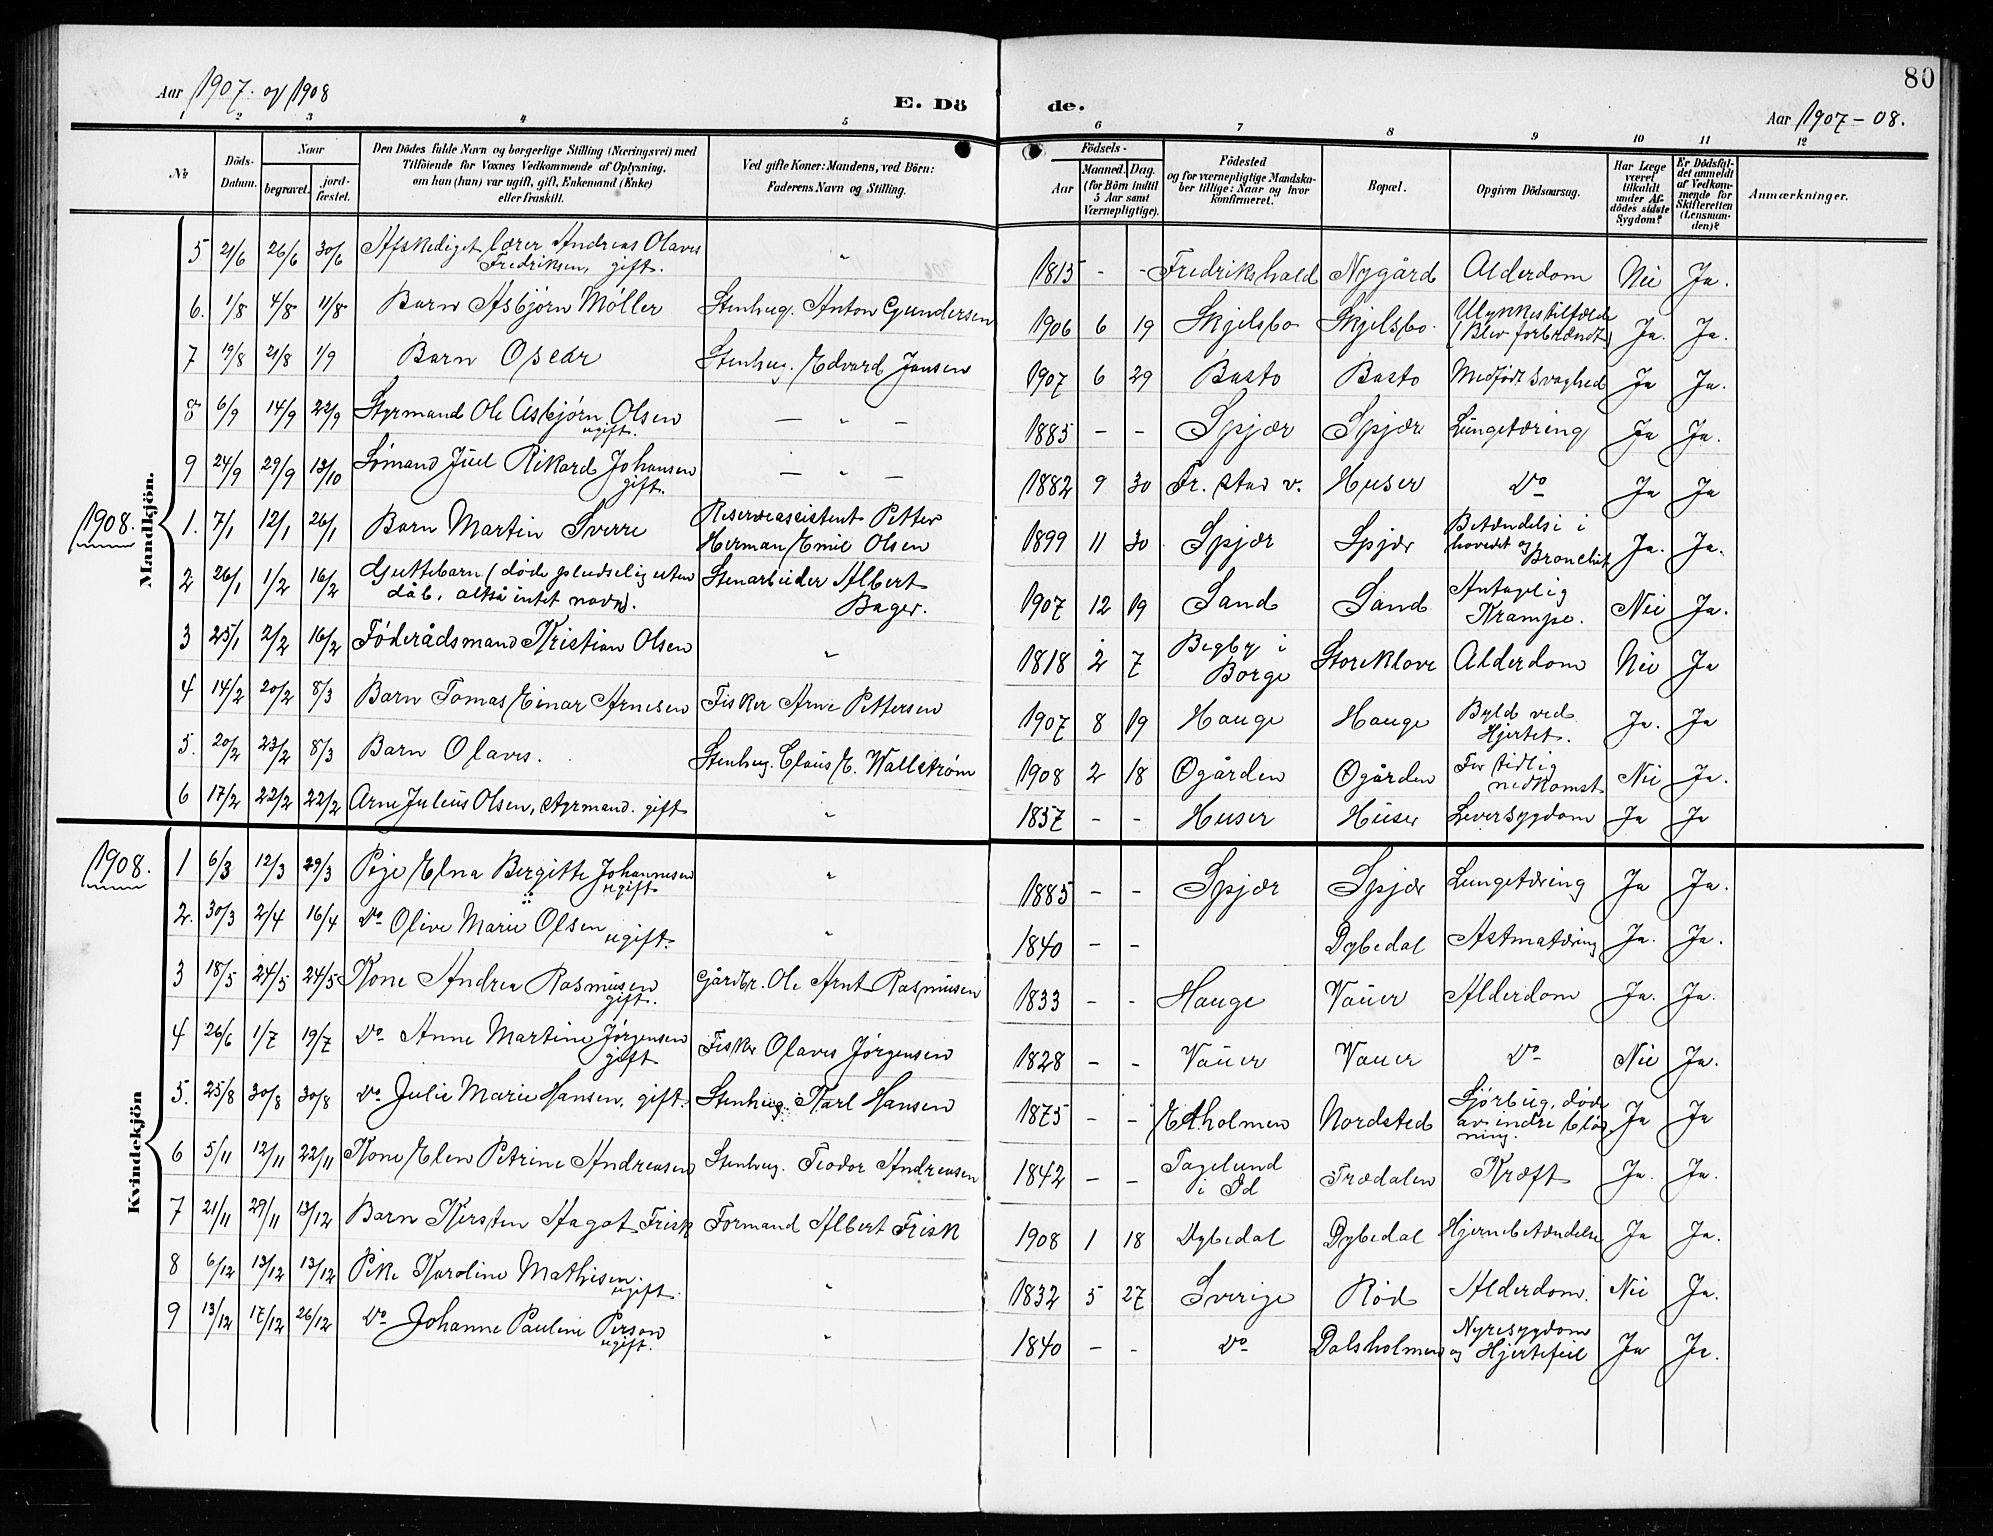 80
Aar 1907. og 1908
E. Döde.
Aar 1907 – 08.
1 2 3 4 5 6 7 8 9 10 11 12
No
Döds-Datum.
Naar
begravet.
jord-fæstet.
Den Dödes fulde Navn og borgerlige Stilling (Næringsvei) med
Tilföiende for Voxnes Vedkommende af Oplysning,
om hun (han) var ugift, gift, Enkemand (Enke)
eller fraskilt.
Ved gifte Koner: Mandens, ved Börn:
Faderens Navn og Stilling.
Födsels-
Aar
Maaned. Dag.
(for Börn indtil
5 Aar samt
Værnepligtige).
Födested
og for værnepligtige Mandska-
ber tillige: Naar og hvor
konfirmeret.
Bopæl.
Opgiven Dödsaarsag.
Har Læge
været
tilkaldt
under Af-
dödes sidste
Sygdom?
Er Dödsfal-
det anmeldt
af Vedkom-
mende for
Skifteretten
(Lensman-
den)?
Anmærkninger.
Mandkjön.
5 21/6 26/6 30/6 Afskediget lærer Andreas Olaves
Fredriksen, gift. " 1815 - - Fredrikshald Nygård Alderdom Nei Ja.
6. 1/8 4/8 11/8 Barn Asbjørn Møller Stenhug. Anton Gundersen 1906 6 19 Skjelsbo Skjelsbo. Ulykkestilfælde
(Blev forbrændt) Ja. Ja.
7 19/8 21/8 1/9 Barn Oscar Stenhug. Edvard Jansen 1907 6 29 Basto Basto Medfødt svaghed Ja Ja.
8 6/9 14/9 22/9 Styrmand Ole Asbjørn Olsen
ugift. — " — 1885 - - Spjær Spjær Lungetæring Ja Ja.
9 24/9 29/9 13/10 Sømand Juel Rikard Johansen
gift. — " — 1882 9 30 Fr. stad v. Huser Do Ja Ja
1908.
1. 7/1 12/1 26/1 Barn Martin Sverre Reserveassistent Petter
Herman Emil Olsen 1899 11 30 Spjær Spjær Betændelse i
hovedet og
Bronchit Ja. Ja.
2 26/1 1/2 16/2 Guttebarn (døde pludselig uten
dåb, altså intet navn). Stenarbeider Albert
Bager. 1907 12 19 Sand Sand Antagelig
Krampe. Nei Ja.
3 25/1 2/2 16/2 Føderådsmand Kristian Olsen " 1818 2 7 Begby i
Borge Storeklove Alderdom Nei Ja
4 14/2 20/2 8/3 Barn Tomas Einar Arnesen Fisker Arne Pettersen 1907 8 19 Hauge Hauge Byld ved
Hjertet. Ja. Ja
5. 20/2 23/2 8/3 Barn Olaves. Stenhug. Claus E. Wallstrøm 1908 2 18 Øgården Øgården For tidlig
nedkomst Nei Ja.
6 17/2 22/2 22/2 Arne Julius Olsen, styrmand. gift " 1857 - - Huser Huser Leversygdom Ja Ja
1908.
Kvindekjön
1 6/3 12/3 29/3 Pige Elna Bergitte Johannesen
ugift " 1885 - - Spjær Spjær Lungetæring Ja Ja.
2. 30/3 2/4 16/4 Do Olive Marie Olsen
ugift. " 1840 - - Dybedal Astmatæring Ja. Ja.
3 18/5 24/5 24/5 Kone Andrea Rasmusen
gift. Gårdbr. Ole Arnt Rasmusen 1833 - - Hauge Vauer Alderdom Ja. Ja.
4 26/6 1/7 19/7 Do Anne Martine Jørgensen
gift Fisker Olaves Jørgensen 1828 - - Vauer Vauer Do Nei Ja.
5. 25/8 30/8 30/8 Do Julie Marie Hansen, gift. Stenhug. Karl Hansen 1875 - - Etholmen Nordsted døde
av indre blød
ning. Ja Ja
6 5/11 12/11 22/11 Kone Elen Petrine Andreasen Stenhug. Teodor Andreasen 1842 - - Tagelund
i Id Trædalen Kræft Ja. Ja.
7 21/11 29/11 13/12 Barn Kirsten Aagot Frisk Formand Albert Frisk 1908 1 18 Dybedal Dybedal Hjernebetændelse Ja Ja.
8 6/12 13/12 13/12 Pike Karoline Mathisen.
ugift. " 1832 5 27 Sverige Rød Alderdom. Nei Ja.
9 13/12 17/12 26/12 Do Johanne Pauline Person
ugift. " 1840 - - Do Dalsholmen Nyresygdom
og Hjertefeil Ja Ja.